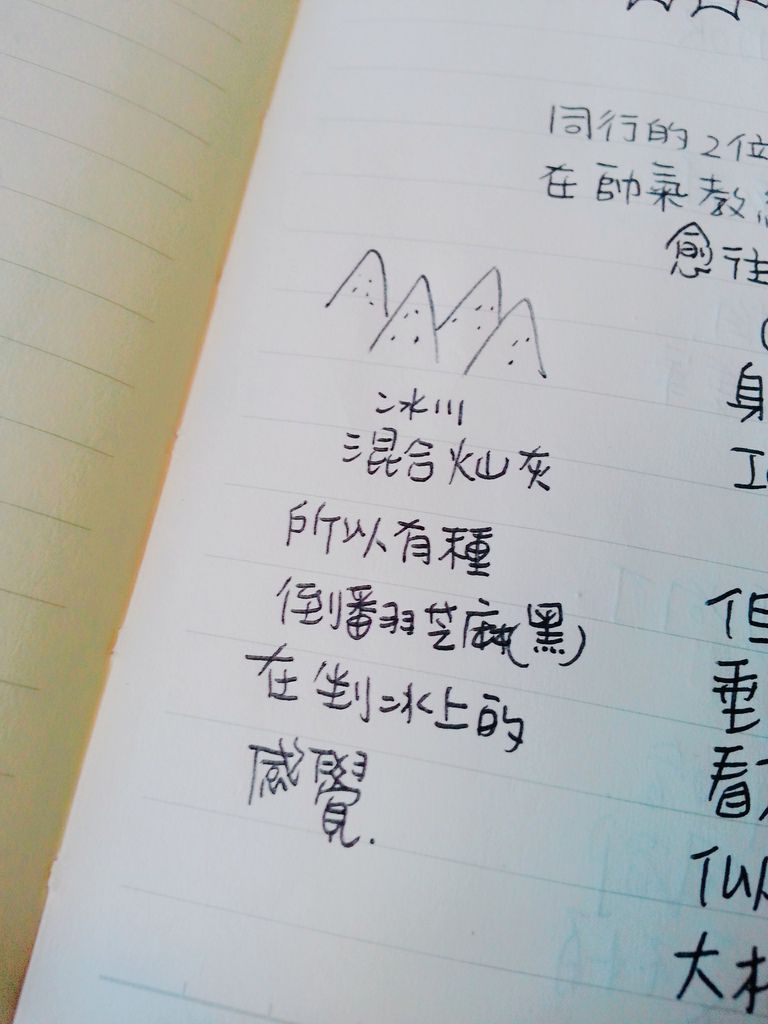 同行的2位
在帥氣教
愈往
冰川
混合火山灰
所以有種
倒翻芝麻(黑)
在剉冰上的
感覺.
身
但
垂
看
似
大